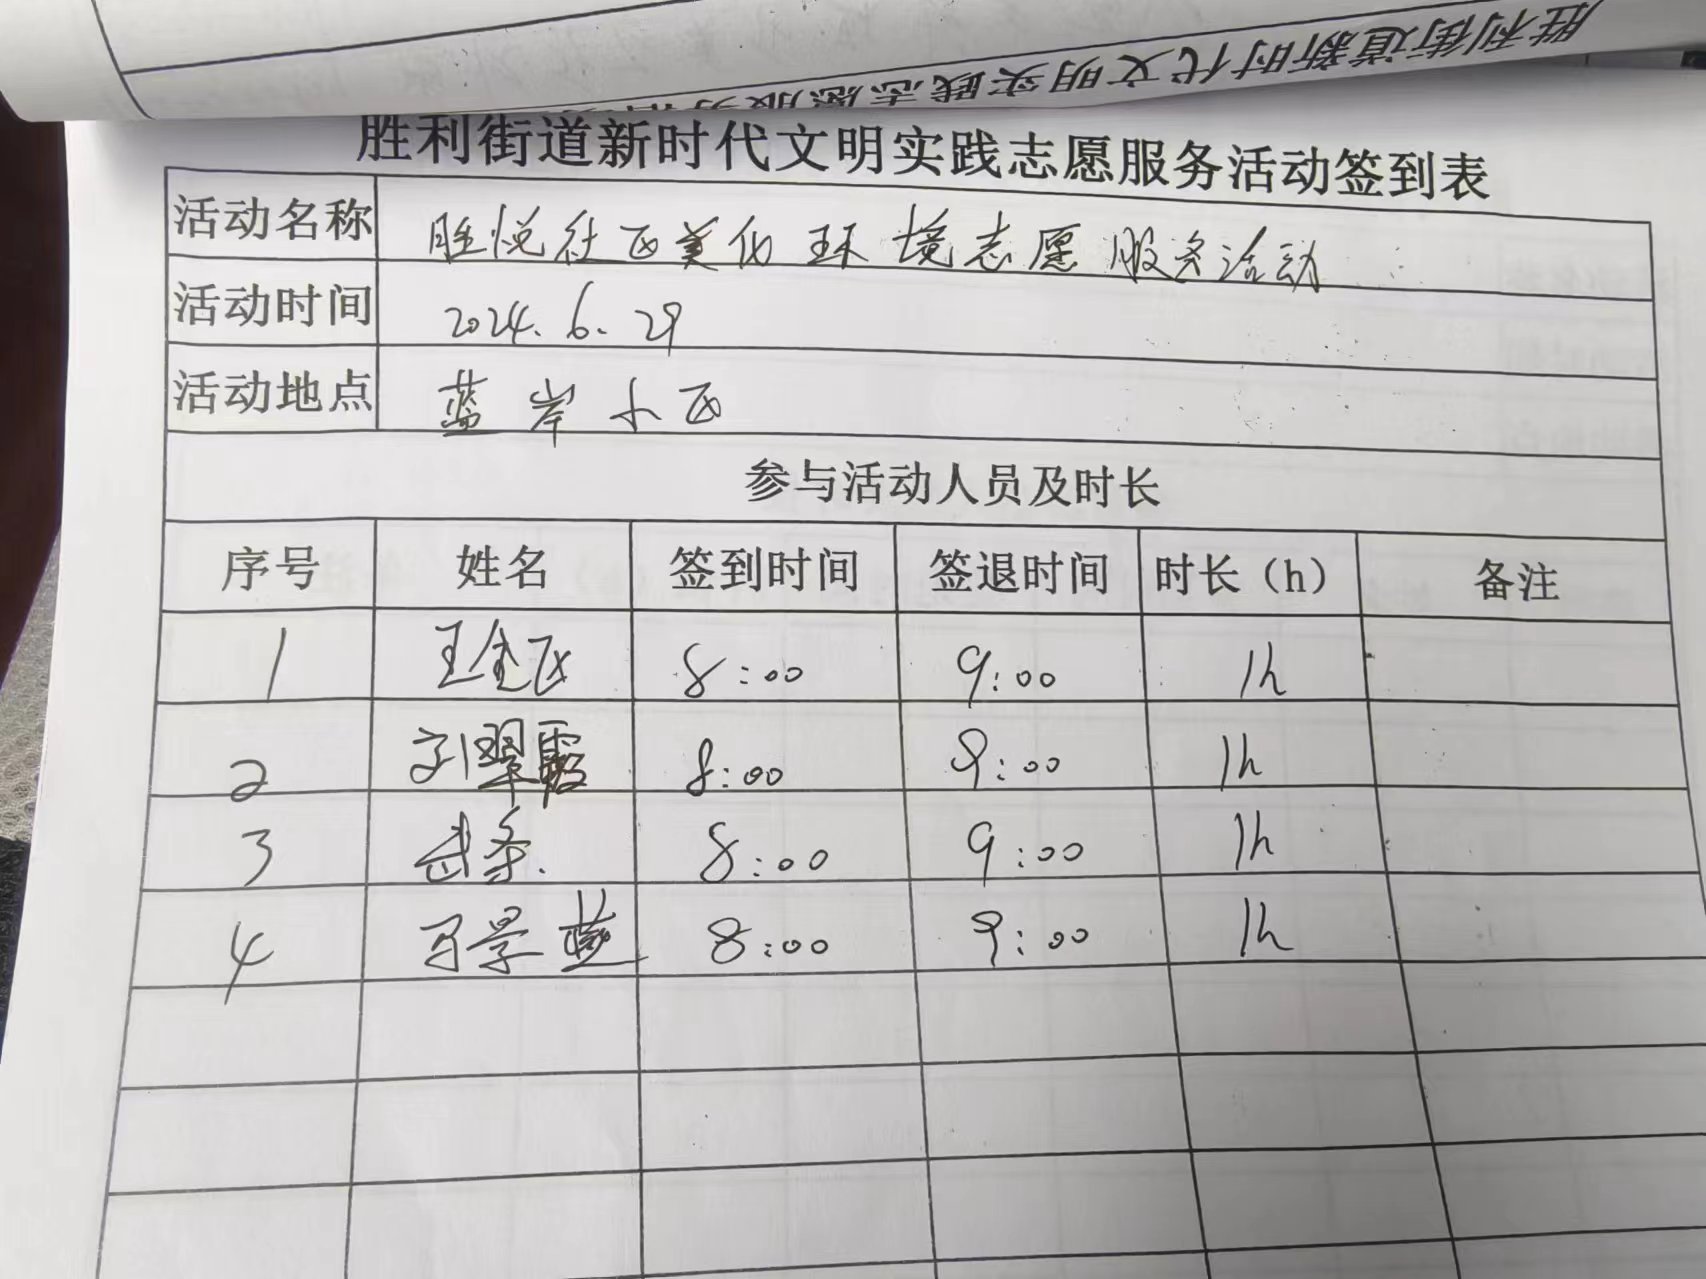 胜利街道新时代文明实践志愿服务
胜利街道新时代文明实践志愿服务活动签到表
活动名称 胜悦社区美化环境志愿服务活动
活动时间 2024.6.29
活动地点 蓝岸小区
参与活动人员及时长
序号 姓名 签到时间 签退时间 时长（h） 备注
1 8:00 9:00 1h
2 刘翠霞 8:00 9:00 1h
3 8:00 9:00 1h
4 8:00 9:00 1h